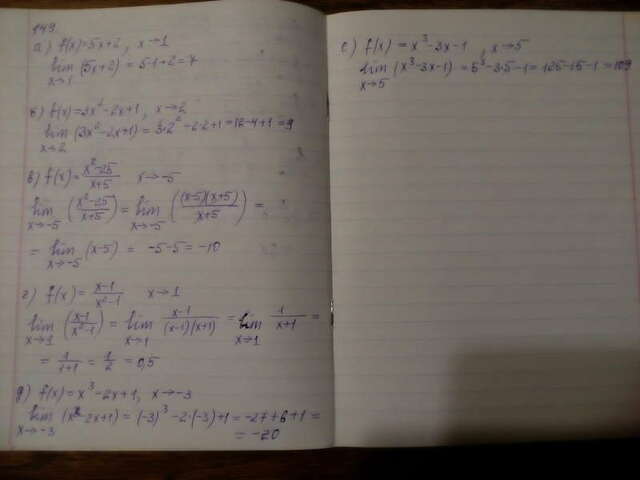 149.
а) f(x)=5x+2, x→1
lim (5x+2) = 5·1+2=7
x→1
б) f(x)=3x²-2x+1, x→2
lim (3x²-2x+1) = 3·2²-2·2+1=12-4+1=9
x→2
в) f(x)= x²-25/x+5 x→-5
lim (x²-25/x+5) = lim ((x-5)(x+5)/x+5) =
x→-5 x→-5
= lim (x-5) = -5-5=-10
x→-5
г) f(x)= x-1/x²-1 x→1
lim (x-1/x²-1) = lim x-1/(x-1)(x+1) = lim 1/x+1 =
x→1 x→1 x→1
= 1/1+1 = 1/2 = 0,5
д) f(x)=x³-2x+1, x→-3
lim (x³-2x+1) = (-3)³-2·(-3)+1=-27+6+1=
x→-3
=-20
е) f(x)=x³-3x-1, x→5
lim (x³-3x-1)=5³-3·5-1=125-15-1=109
x→5